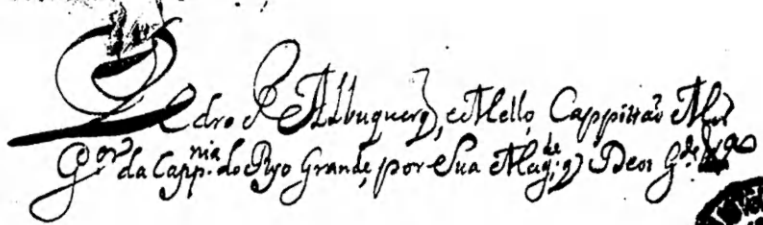 Pedro de Albuquerq̃, e Mello, Cappittaõ Mor
Gor. da Capp.nia do Ryo Grande, por Sua Mag.de q̃ Deos G.de &ª